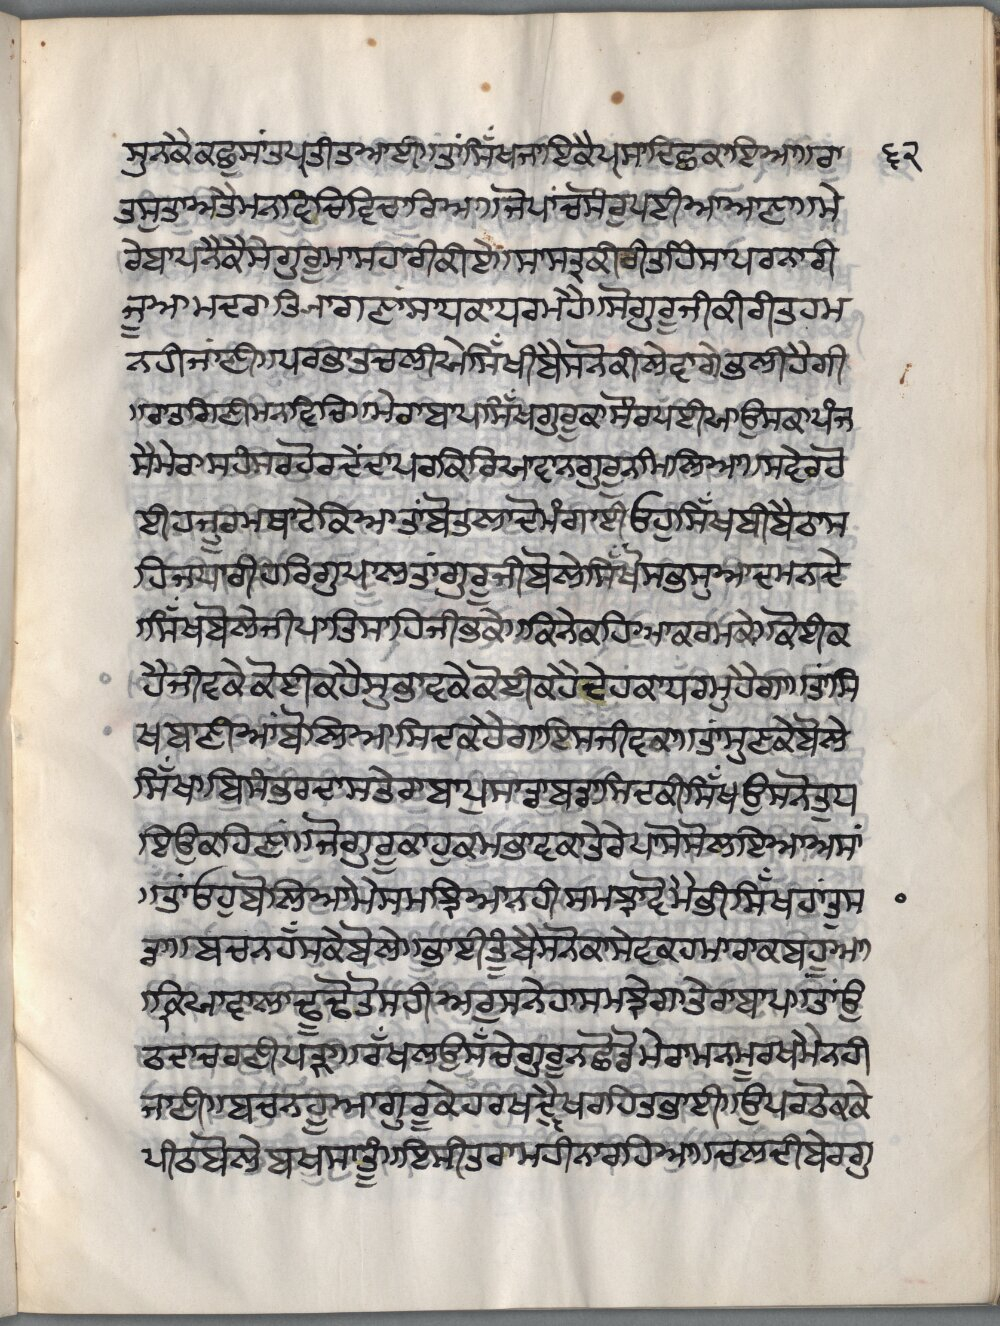 ਸੁਨਕੇ ਕਛੁ ਸਾਂਤ ਪ੍ਰਤੀਤ ਆਈ। ਤਾਂ ਸਿੱਖ ਜਾਇ ਕੈ ਪ੍ਰਸਾਦਿ ਛਕਾਇਆ। ਰਾ ੬੨
ਤ ਸੁਤਾ ਅਤੈ ਮਨ ਵਿਚਿ ਵਿਚਾਰਿਆ। ਜੋ ਪਾਂਚ ਸੌ ਰੁਪਈਆ ਆਣਾ। ਮੇ
ਰੇ ਬਾਪ ਨੈ ਕੈਸੇ ਗੁਰੂ ਸਾਮਹਾਰੀ ਕੀਏ। ਸਾਸਤ੍ਰ ਕੀ ਰੀਤ ਹਿੰਸਾ ਪਰ ਨਾਰੀ
ਜੂਆ ਮਦਰਾ ਤਿਆਗਣਾਂ ਸਾਧ ਕਾ ਧਰਮ ਹੈ। ਸੋ ਗੁਰੂ ਜੀ ਕੀ ਰੀਤ ਹਮ
ਨਹੀ ਜਾਣੀ। ਪਰਭਾਤ ਚਲੀਐ ਸਿੱਖੀ ਬੈਸਨੋ ਕੀ ਲੇਵਾਗੇ ਭਲੀ ਹੈਗੀ
ਰਾਤ ਗਿਣੀ ਮਨ ਵਿਚਿ। ਮੇਰਾ ਬਾਪ ਸਿੱਖ ਗੁਰੂ ਕਾ ਸੌ ਰੁਪਈਆ ਉਸ ਕਾ ਪੰਜ
ਸੈ ਮੇਰਾ ਸਹੰਸਰ ਹੋਰ ਦੇਂਦਾ ਪਰ ਕਿਰਿਆਵਾਨ ਗੁਰੂ ਨ ਮਿਲਿਆ। ਸਵੇਰ ਹੋ
ਈ ਹਜੂਰ ਮਥਾ ਟੇਕਿਆ ਤਾਂ ਬੋਤਲ ਦੋ ਮੰਗਾਈ ਓਹੁ ਸਿੱਖ ਬੀ ਬੈਠਾ ਸ
ਹਿਜਧਾਰੀ ਹਰਿ ਗੁਪਾਲ ਤਾਂ ਗੁਰੂ ਜੀ ਬੋਲੇ ਸਿੱਖੋ ਸਭ ਸੁਆਦ ਮਨ ਦੇ
ਸਿੱਖ ਬੋਲੇ ਜੀ ਪਾਤਿਸਾਹਿ ਜੀਭ ਕੇ। ਕਿਨੇ ਕਹਿਆ ਕਰਮ ਕੇ। ਕੋਈ ਕ
ਹੈ ਜੀਵਕੇ ਕੋਈ ਕਹੈ ਸੁਭਾਵਕੇ ਕੋਈ ਕਹੈ ਦੇਹ ਕਾ ਧਰਮੁ ਹੈਗਾ। ਤਾਂ ਸਿ
ਖ ਬਾਣੀਆਂ ਬੋਲਿਆ ਸਿਦਕੇ ਹੈਗਾ ਇਸ ਜੀਵਕਾ। ਤਾਂ ਸੁਣ ਕੇ ਬੋਲੇ
ਸਿੱਖਾ ਬਿਸੰਭਰ ਦਾਸ ਤੇਰਾ ਬਾਪੁ ਸਾਡਾ ਬਡਾ ਸਿਦਕੀ ਸਿੱਖ ਉਸਨੇ ਤੁਧ
ਇਉ ਕਹਿਣਾਂ। ਜੋ ਗੁਰੂ ਕਾ ਹੁਕਮ ਭਾਵਕਾ ਤੇਰੇ ਪਾਸੋ ਸੋ ਲਇਆ ਅਸਾਂ
ਤਾਂ ਓਹੁ ਬੋਲਿਆ ਮੈ ਸਮਝਿਆ ਨਹੀ ਸਮਝਾਵੋ ਮੈ ਭੀ ਸਿੱਖ ਹਾਂ ਤੁਸਾ
ਡਾ। ਬਚਨ ਹੱਸ ਕੇ ਬੋਲੇ। ਭਾਈ ਤੂੰ ਬੈਸਨੋ ਕਾ ਸੇਵਕ ਹਮਾਰਾ ਕਬ ਹੂਆ
ਕ੍ਰਿਆਵਾਲਾ ਢੂਢੋ ਤੋ ਸਹੀ ਅਰੁ ਸਨੇਹਾ ਸਮਝੇਗਾ ਤੇਰਾ ਬਾਪ। ਤਾਂ ਉ
ਠਦਾ ਚਰਣੀ ਪੜਾ। ਰੱਖ ਲਉ ਸੱਚੇ ਗੁਰੂ ਨ ਛੋਡੋ ਮੇਰਾ ਮਨ ਮੂਰਖ ਮੈ ਨਹੀ
ਜਾਣੀ। ਬਚਨ ਹੂਆ ਗੁਰੂ ਕੇ ਹਰਖ ਦ੍ਵੈਖ ਰਹਿਤ ਭਾਈ। ਉਪਰ ਠੋਕ ਕੇ
ਪੀਠ ਬੋਲੇ ਬਖਸਾ ਤੂੰ। ਇਸੀ ਤਰਾ ਮਹੀਨਾ ਰਹਿਆ। ਚਲਦੀ ਬੇਰ ਗੁ